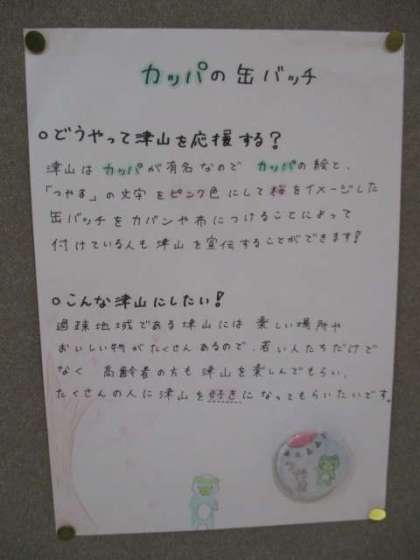 カッパの缶バッチ
○どうやって津山を応援する？
津山はカッパが有名なのでカッパの絵と、
「つやま」の文字をピンク色にして桜をイメージした
缶バッチをカバンや布につけることによって
付けている人も津山を宣伝することができます！
○こんな津山にしたい！
過疎地域である津山には楽しい場所や
おいしい物がたくさんあるので、若い人たちだけで
なく高齢者の方も津山を楽しんでもらい、
たくさんの人に津山を好きになってもらいたいです。